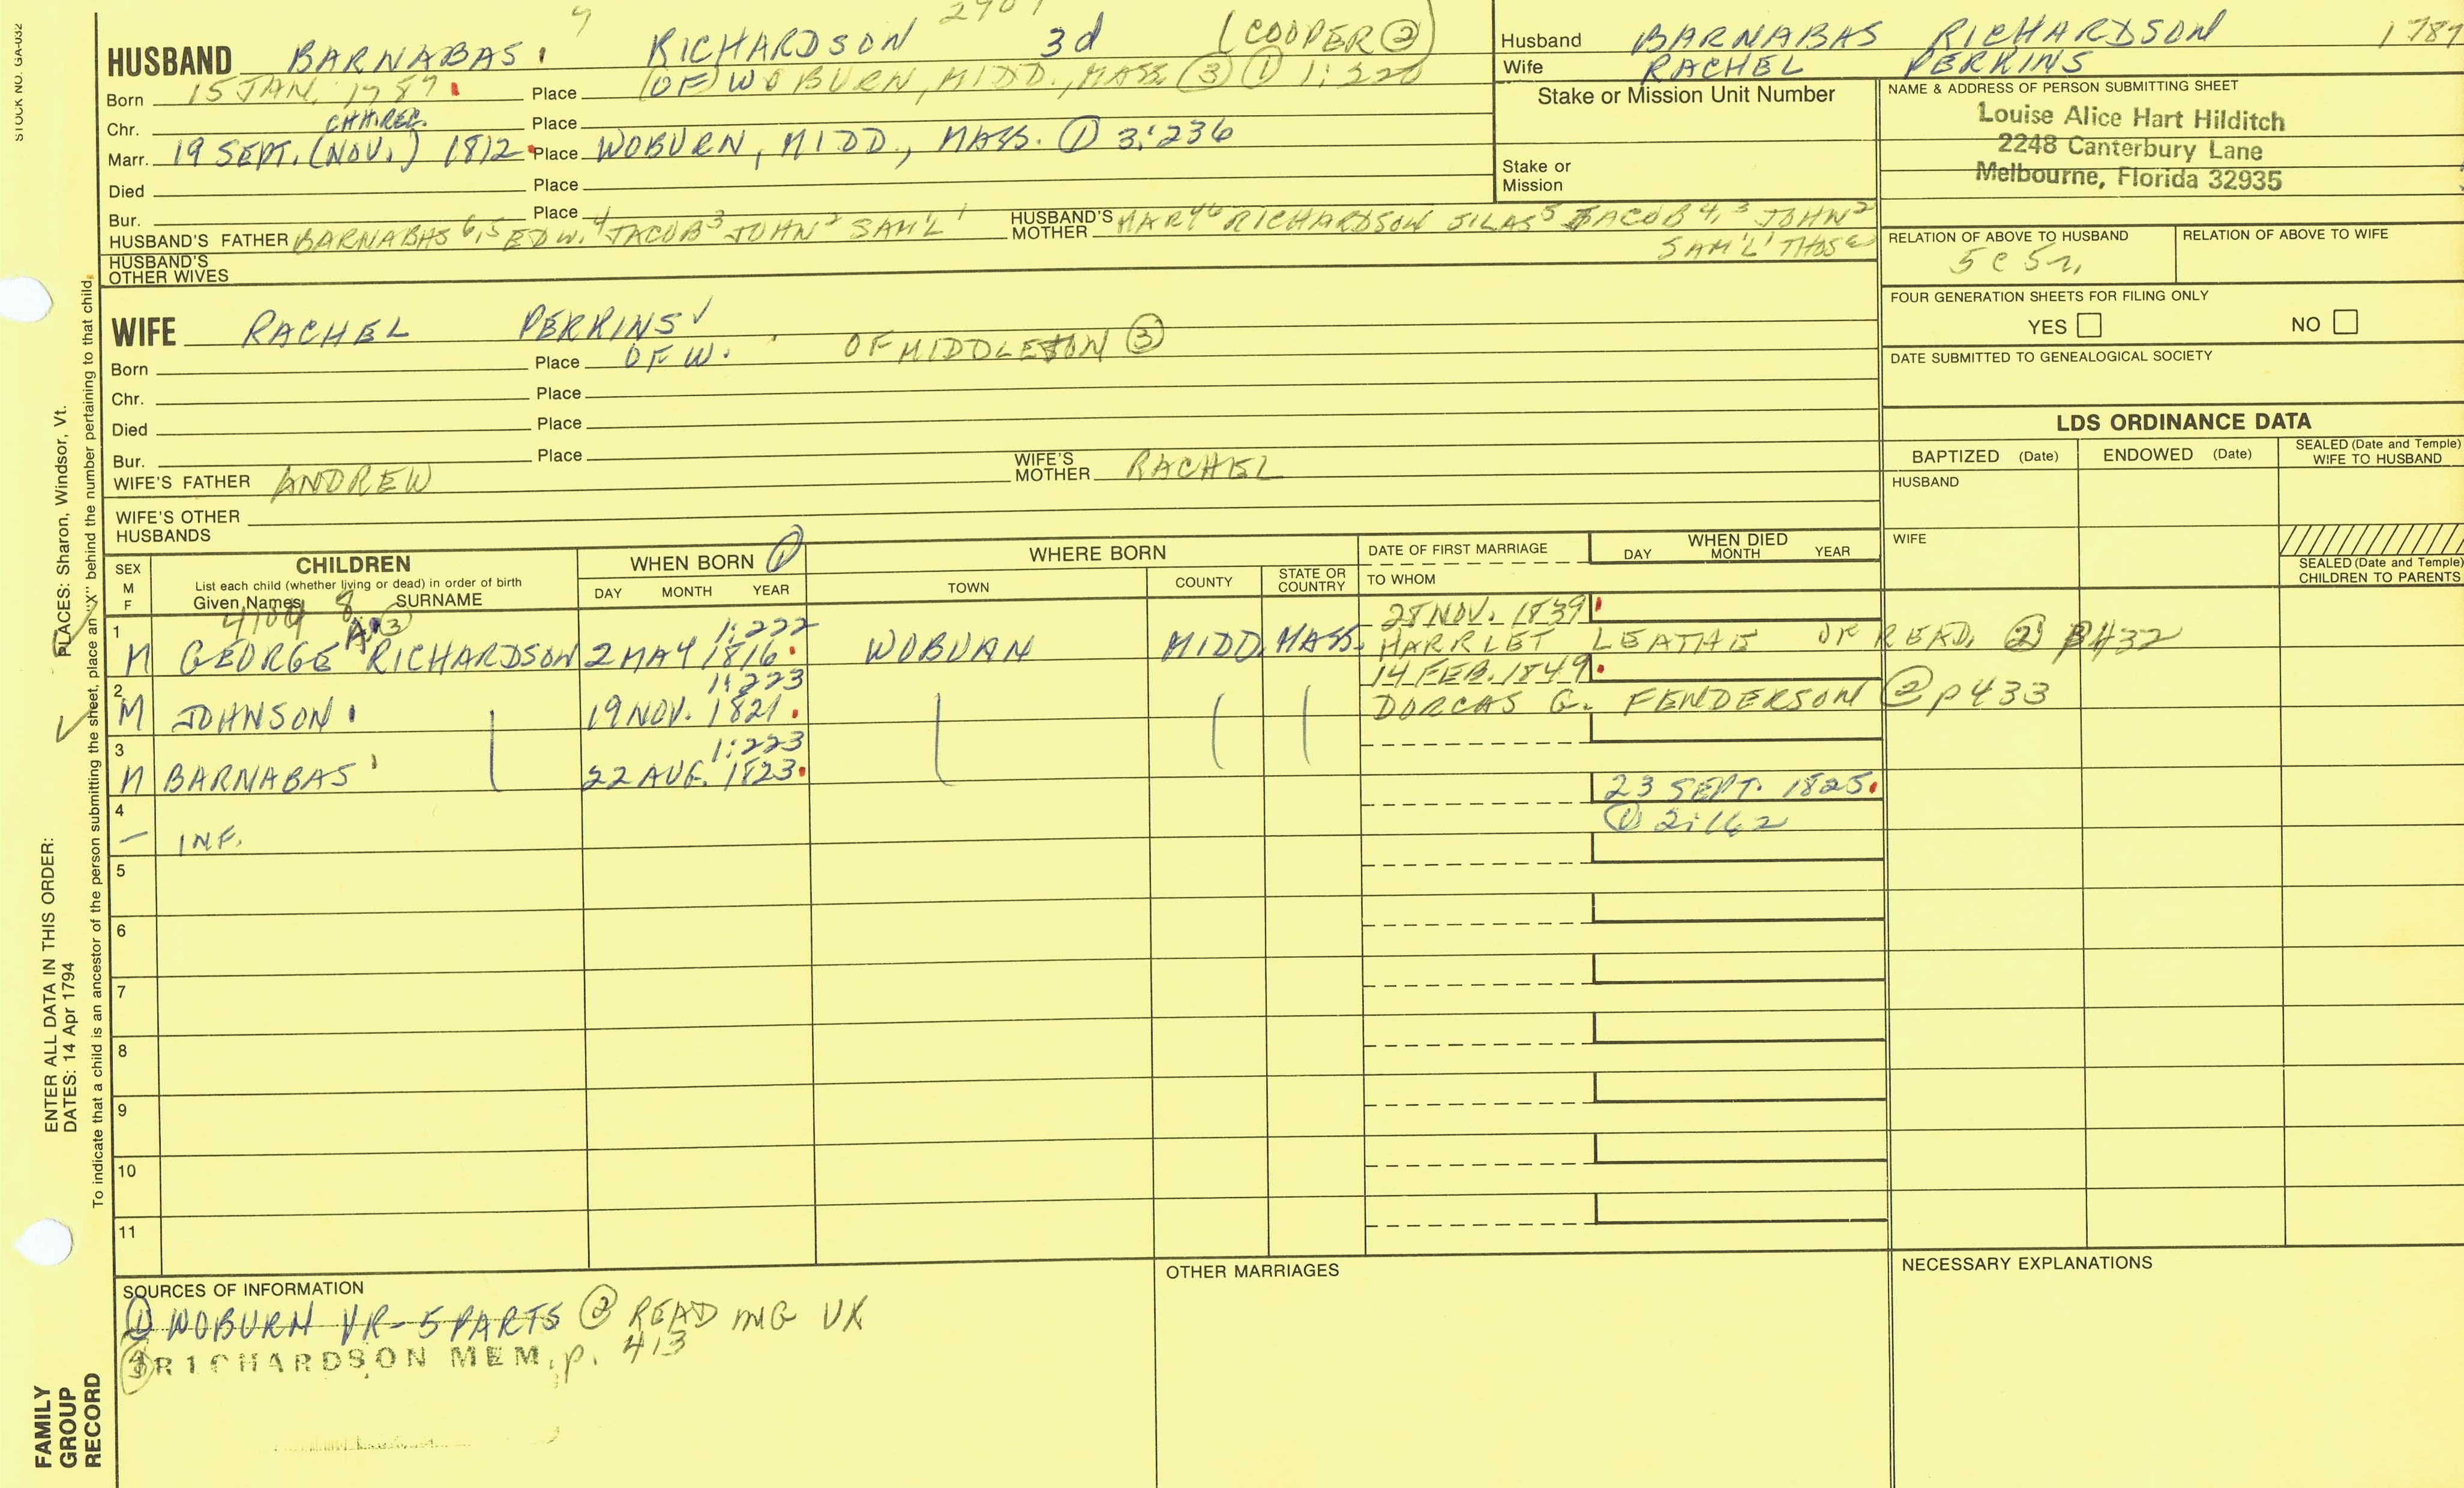 STOCK NO. GA-032
HUSBAND BARNABAS RICHARDSON 3d (COOPER ②)
Born 15 JAN. 1787 Place (OF) WOBURN, MIDD., MASS ③ ① 1:220
Chr. Place
CHH.REC.
Marr. 19 SEPT. (NOV.) 1812 Place WOBURN, MIDD., MASS. ① 3:236
Died Place
Bur. Place
HUSBAND'S FATHER BARNABAS 6,5 EDW. 4 JACOB 3 JOHN 2 SAM'L 1 HUSBAND'S MOTHER MARY 6 RICHARDSON SILAS 5 JACOB 4,3 JOHN 2
SAM'L 1 THOS
HUSBAND'S OTHER WIVES
Husband BARNABAS RICHARDSON 1787
Wife RACHEL PERKINS
Stake or Mission Unit Number
Stake or Mission
NAME & ADDRESS OF PERSON SUBMITTING SHEET
Louise Alice Hart Hilditch
2248 Canterbury Lane
Melbourne, Florida 32935
RELATION OF ABOVE TO HUSBAND RELATION OF ABOVE TO WIFE
5 C 5 r.
FOUR GENERATION SHEETS FOR FILING ONLY
YES NO
DATE SUBMITTED TO GENEALOGICAL SOCIETY
WIFE RACHEL PERKINS
Born Place OF W. OF MIDDLETON ③
Chr. Place
Died Place
Bur. Place
WIFE'S FATHER ANDREW WIFE'S MOTHER RACHEL
WIFE'S OTHER HUSBANDS
LDS ORDINANCE DATA
BAPTIZED (Date) ENDOWED (Date) SEALED (Date and Temple) WIFE TO HUSBAND
HUSBAND
WIFE
SEALED (Date and Temple) CHILDREN TO PARENTS
SEX M F
CHILDREN
List each child (whether living or dead) in order of birth
Given Names SURNAME
WHEN BORN ①
DAY MONTH YEAR
WHERE BORN
TOWN COUNTY STATE OR COUNTRY
DATE OF FIRST MARRIAGE
TO WHOM
WHEN DIED
DAY MONTH YEAR
1 1:222 28 NOV. 1839
M GEORGE A. ③ RICHARDSON 2 MAY 1816 WOBURN MIDD. MASS. HARRIET LEATHE OF READ. ② P432
2 1:223 14 FEB. 1849
M JOHNSON 19 NOV. 1821 DORCAS G. FENDERSON ② p433
3 1:223
M BARNABAS 22 AUG. 1823
4 23 SEPT. 1825
- INF. ① 2:162
5
6
7
8
9
10
11
SOURCES OF INFORMATION
① WOBURN VR-5 PARTS ② READING VR
③ RICHARDSON MEM. p. 413
OTHER MARRIAGES
NECESSARY EXPLANATIONS
PLACES: Sharon, Windsor, Vt.
ENTER ALL DATA IN THIS ORDER:
DATES: 14 Apr 1794
To indicate that a child is an ancestor of the person submitting the sheet, place an "X" behind the number pertaining to that child.
FAMILY
GROUP
RECORD